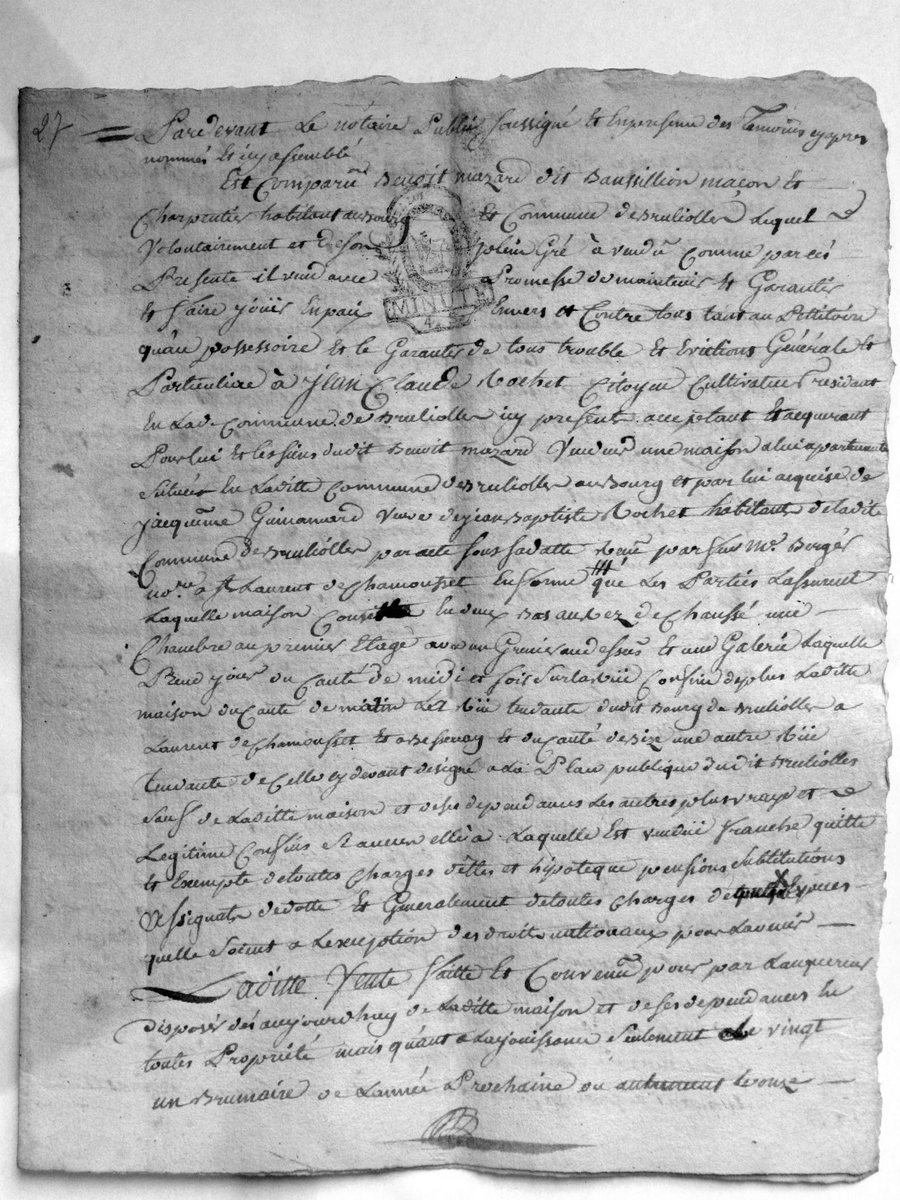 27
Pardevant Le nótaire Public soussigné et Enpresence des Temoins cyapres
nommés Et icy assemblé
Est Comparû Benoit mazard dit Baussillion maçon et
Charpentier habitant aubourg Et Commune debrulioller Lequel
Volontairement et deson plein Gré à vendû Comme par ces
Presente il vend avec Promesse de maintenir et Garantir
et faire jouir En paix Envers et Contre tous tant au Petitoire
qu'au possessoire Et le Garantir de tous trouble et Evictions Générale et
Particuliere à jean Claude Rochet Citoyen Cultivateur residant
En Lad. Commune de Brulioller icy present acceptant Et acquerant
Pour lui Et les siens dudit Benoit mazard Vendeur une maison a lui apartenante
Située En Laditte Commune deBrulioller auBourg et par lui acquise de
jacquême Guinamard Veuve dejean Baptiste Rochet habitante deladite
Commune deBrulioller par acte sous sa datte Recu par feu Me. Berger
nore. a St Laurent de Chamousset En forme que Les Parties Lassurent
Laquelle maison Consiste En deux Bas aux rez de Chaussé une
Chambre au premier Etage avec un Grenier audessus Et une Galerie Laquelle
Prend jour du Cauté de midi et soir sur la ruë Confine deplus Laditte
maison du Cauté de matin La Ruë tendante dudit Bourg de Brulioller a
Laurent deChamousset Et a Bessenay Et du Cauté de Bize une autre Ruë
tendante de Celle cy devant désigné a La Place publique dudit Brulioller
sauf de Laditte maison et de ses dependances Les autres plus vrays et
Legitime Confins si aucun elle à Laquelle Est vendue franche quitte
et Exempte de toutes Charges dêttes et hipoteque pensions substitutions
Assignats de dotte Et Generalement de toutes Charges de
quelle soient a Lexception des droits nationaux pour Lavenir
Laditte Vente faitte Et Convenue pour par Lacquereur
disposer dès aujourdhuy de Laditte maison et de ses dependances En
toutes Propriété mais quánt a La jouissance seulement Le vingt
un Brumaire de Lannée Prochaine ou autrement le onze
MINUTE